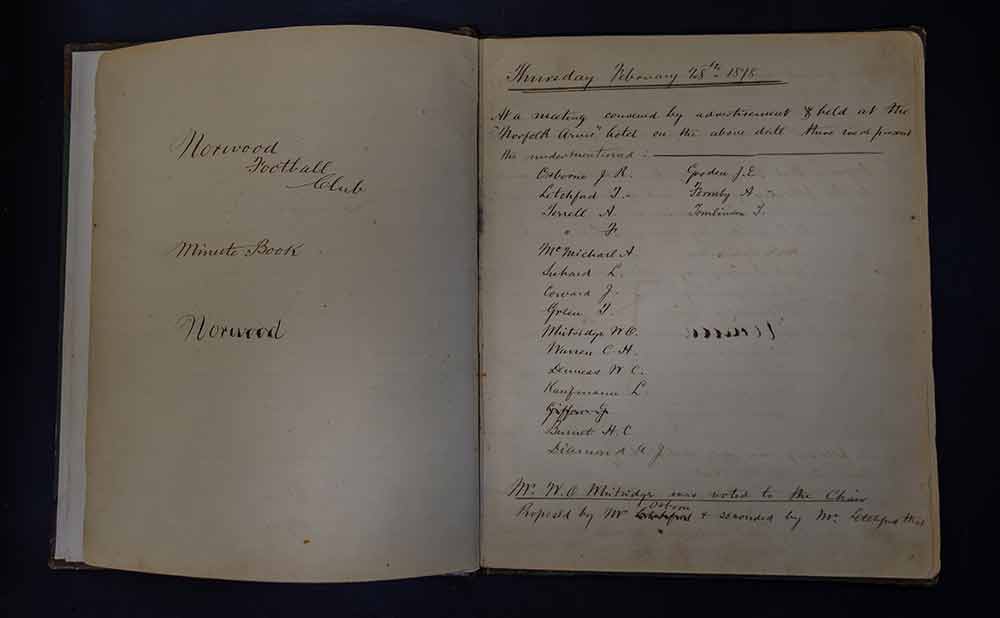 Norwood
Football
Club
Minute Book
Norwood
Thursday February 28th 1878
At a meeting convened by advertisement & held at the
"Norfolk Arms" hotel on the above date there were present
the undermentioned :
Osborne J. R.
Letchford T.
Terrell A.
" F.
McMichael A
L.
Coward J.
Green T.
Whitridge W. O.
Warren C. H.
Denness W. C.
Kaufmann L.
Burnet H. C
Diamond A J
Gooden J. E.
Formby A
Tomlinson T.
Mr. W. O Whitridge was voted to the Chair
Proposed by Mr Osborn & seconded by Mr. Letchford that